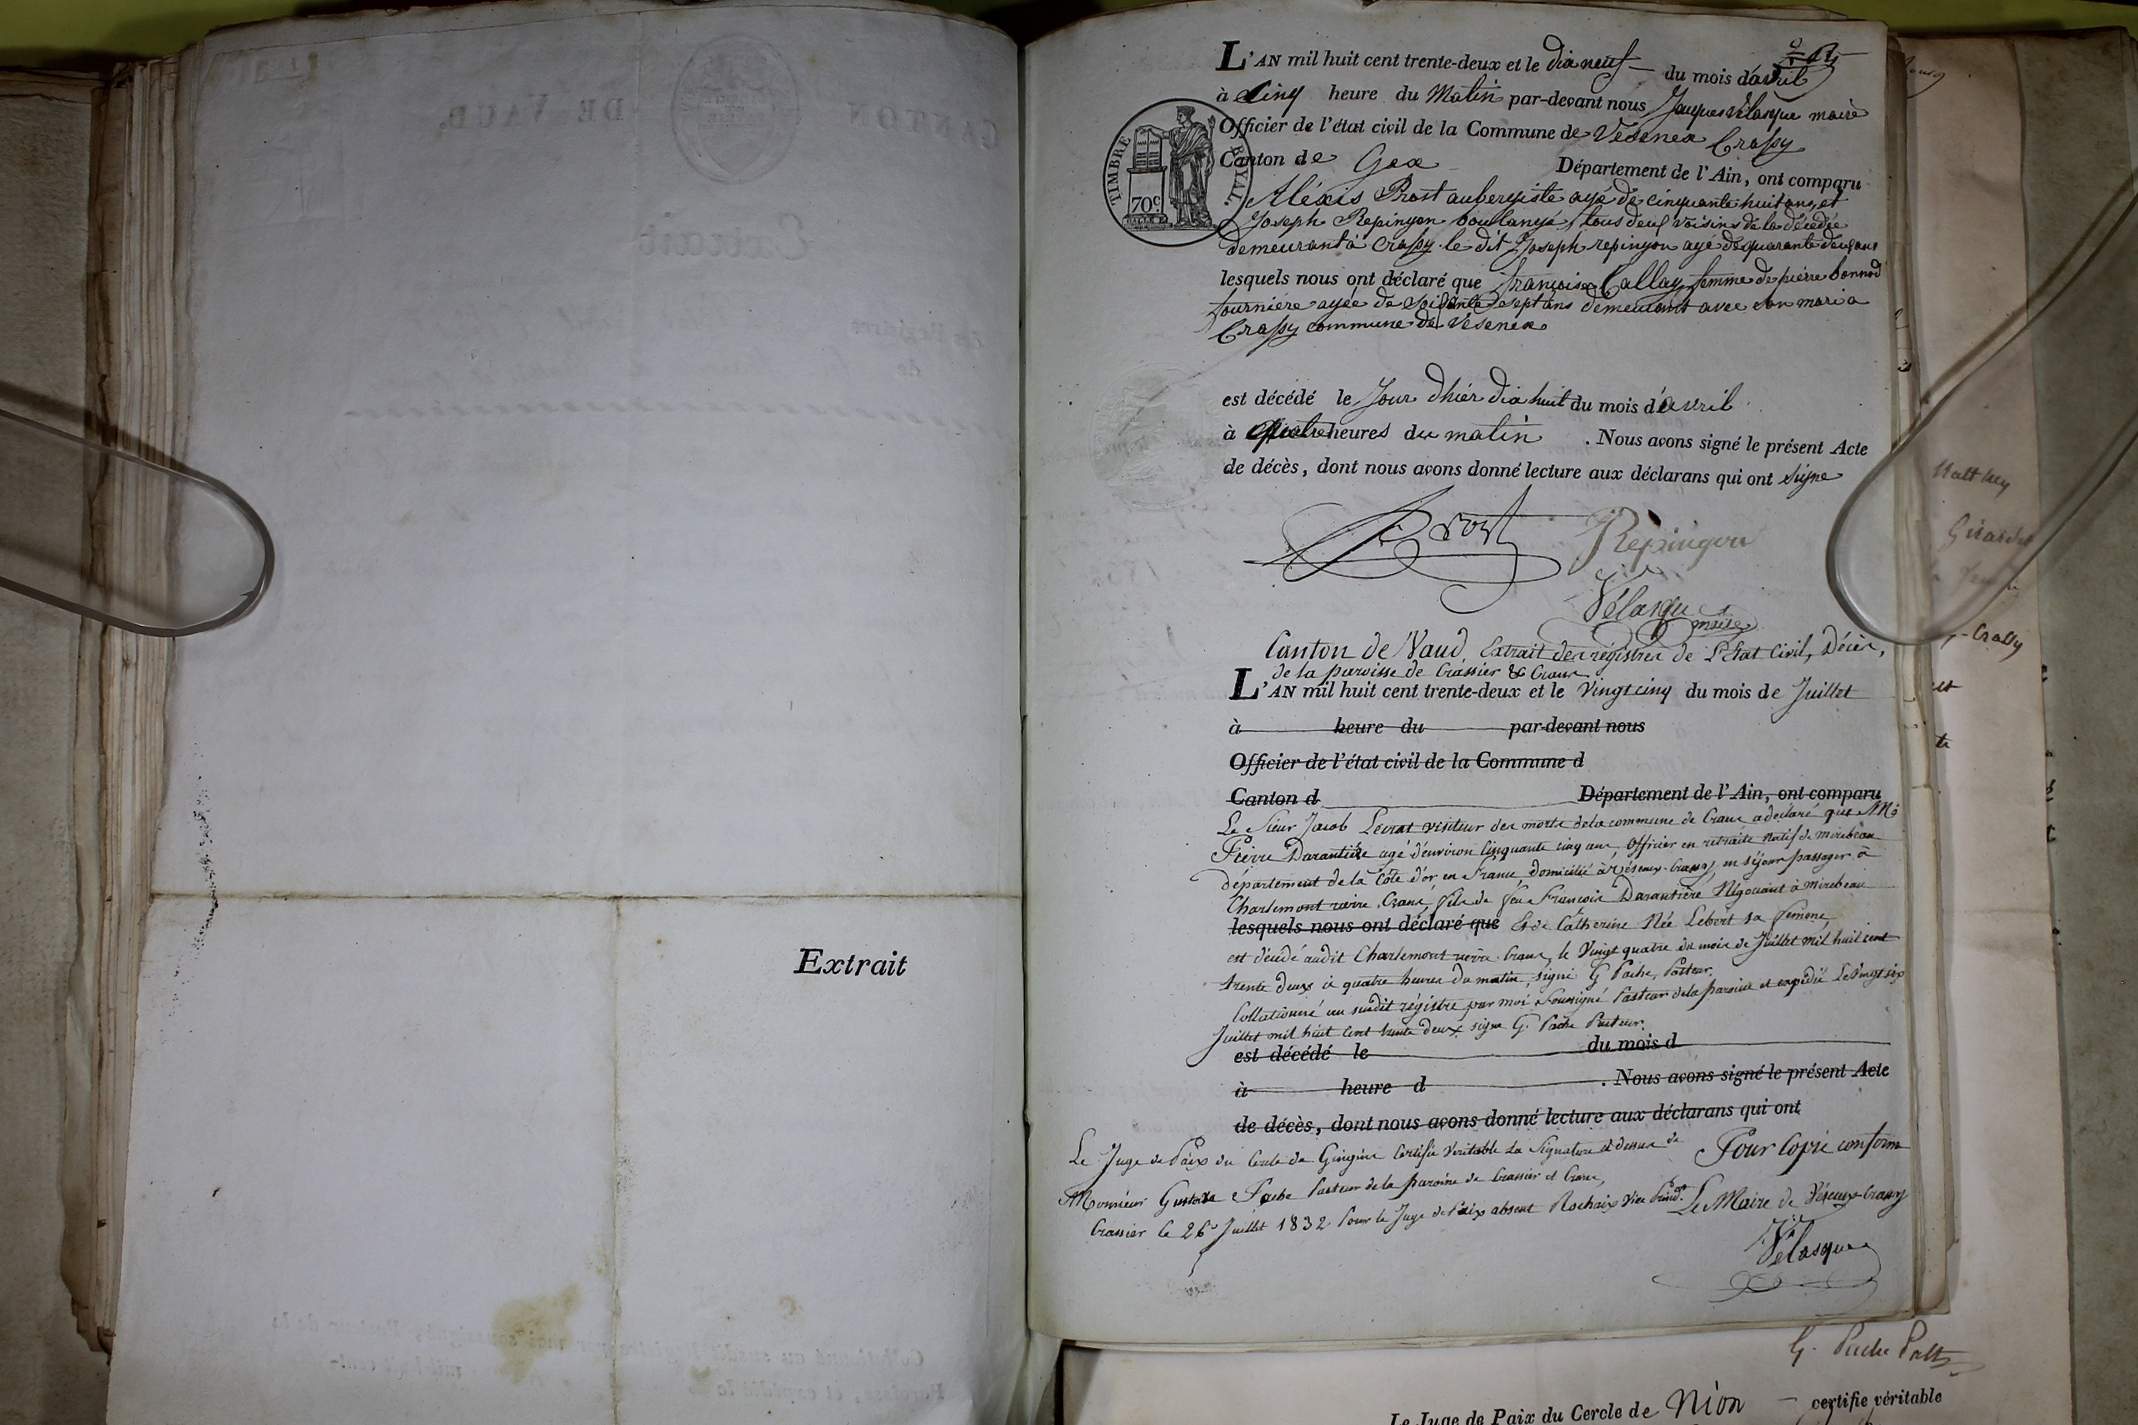 Extrait
L'AN mil huit cent trente-deux et le dix neuf du mois d'avril
à Cinq heure du Matin par-devant nous Jacques Vélasque maire
Officier de l'état civil de la Commune de Vésenex Crassy
Canton de Gex Département de l'Ain, ont comparu
TIMBRE ROYAL
70c.
Aléxis Prost aubergiste agé de cinquante huit ans, et
Joseph Repingon boullangé, tous deux voisins de la décédée
demeurant à Crassy le dit Joseph repingon agé de quarante deux ans
lesquels nous ont déclaré que françoise Callay femme de pierre bonnod
agée de soixante sept ans demeurant avec son mari a
Crassy commune de Vesenex
est décédé le Jour dhier dix huit du mois d'avril
à quatre heures du matin . Nous avons signé le présent Acte
de décès, dont nous avons donné lecture aux déclarans qui ont signe
Prost Repingon
Vélasque maire
Canton de Vaud, Extrait des régistres de l'Etat Civil, Décès,
de la paroisse de Crassier & Crans
L'AN mil huit cent trente-deux et le Vingt cinq du mois de Juillet
à heure du par-devant nous
Officier de l'état civil de la Commune d
Canton d Département de l'Ain, ont comparu
Le Sieur Jacob Levrat visiteur des morts de la commune de Crans a déclaré que Mr
Pierre Darantière agé d'environ Cinquante cinq ans, Officier en retraite natif de mirebeau
département de la Côte d'or en France, domicilié à Vésenex-Crassy, en séjour passager à
Charlemont rière Crans, fils de feu François Darantière Négociant à mirebeau
lesquels nous ont déclaré que Et de Catherine Née Lebert sa femme,
est décédé audit Charlemont rière Crans, le Vingt quatre du mois de Juillet mil huit cent
trente deux à quatre heures du matin, signé G Pache, Pasteur.
Collationné au susdit régistre par moi Soussigné Pasteur de la paroisse et expédié Le Vingt six
Juillet mil huit cent trente deux signé G. Pache Pasteur.
est décédé le du mois d
à heure d . Nous avons signé le présent Acte
de décès, dont nous avons donné lecture aux déclarans qui ont
Le Juge de Paix du Cercle de Gingins Certifie Véritable La Signature ci dessus de
Monsieur Gustave Pache Pasteur de la paroisse de Crassier et Crans,
Crassier le 26e Juillet 1832 Pour le Juge de Paix absent Rochaix Vice Présidt.
Pour Copie conforme
Le Maire de Vésenex-Crassy
Vélasque
G. Pache Past
Le Juge de Paix du Cercle de Nion certifie véritable